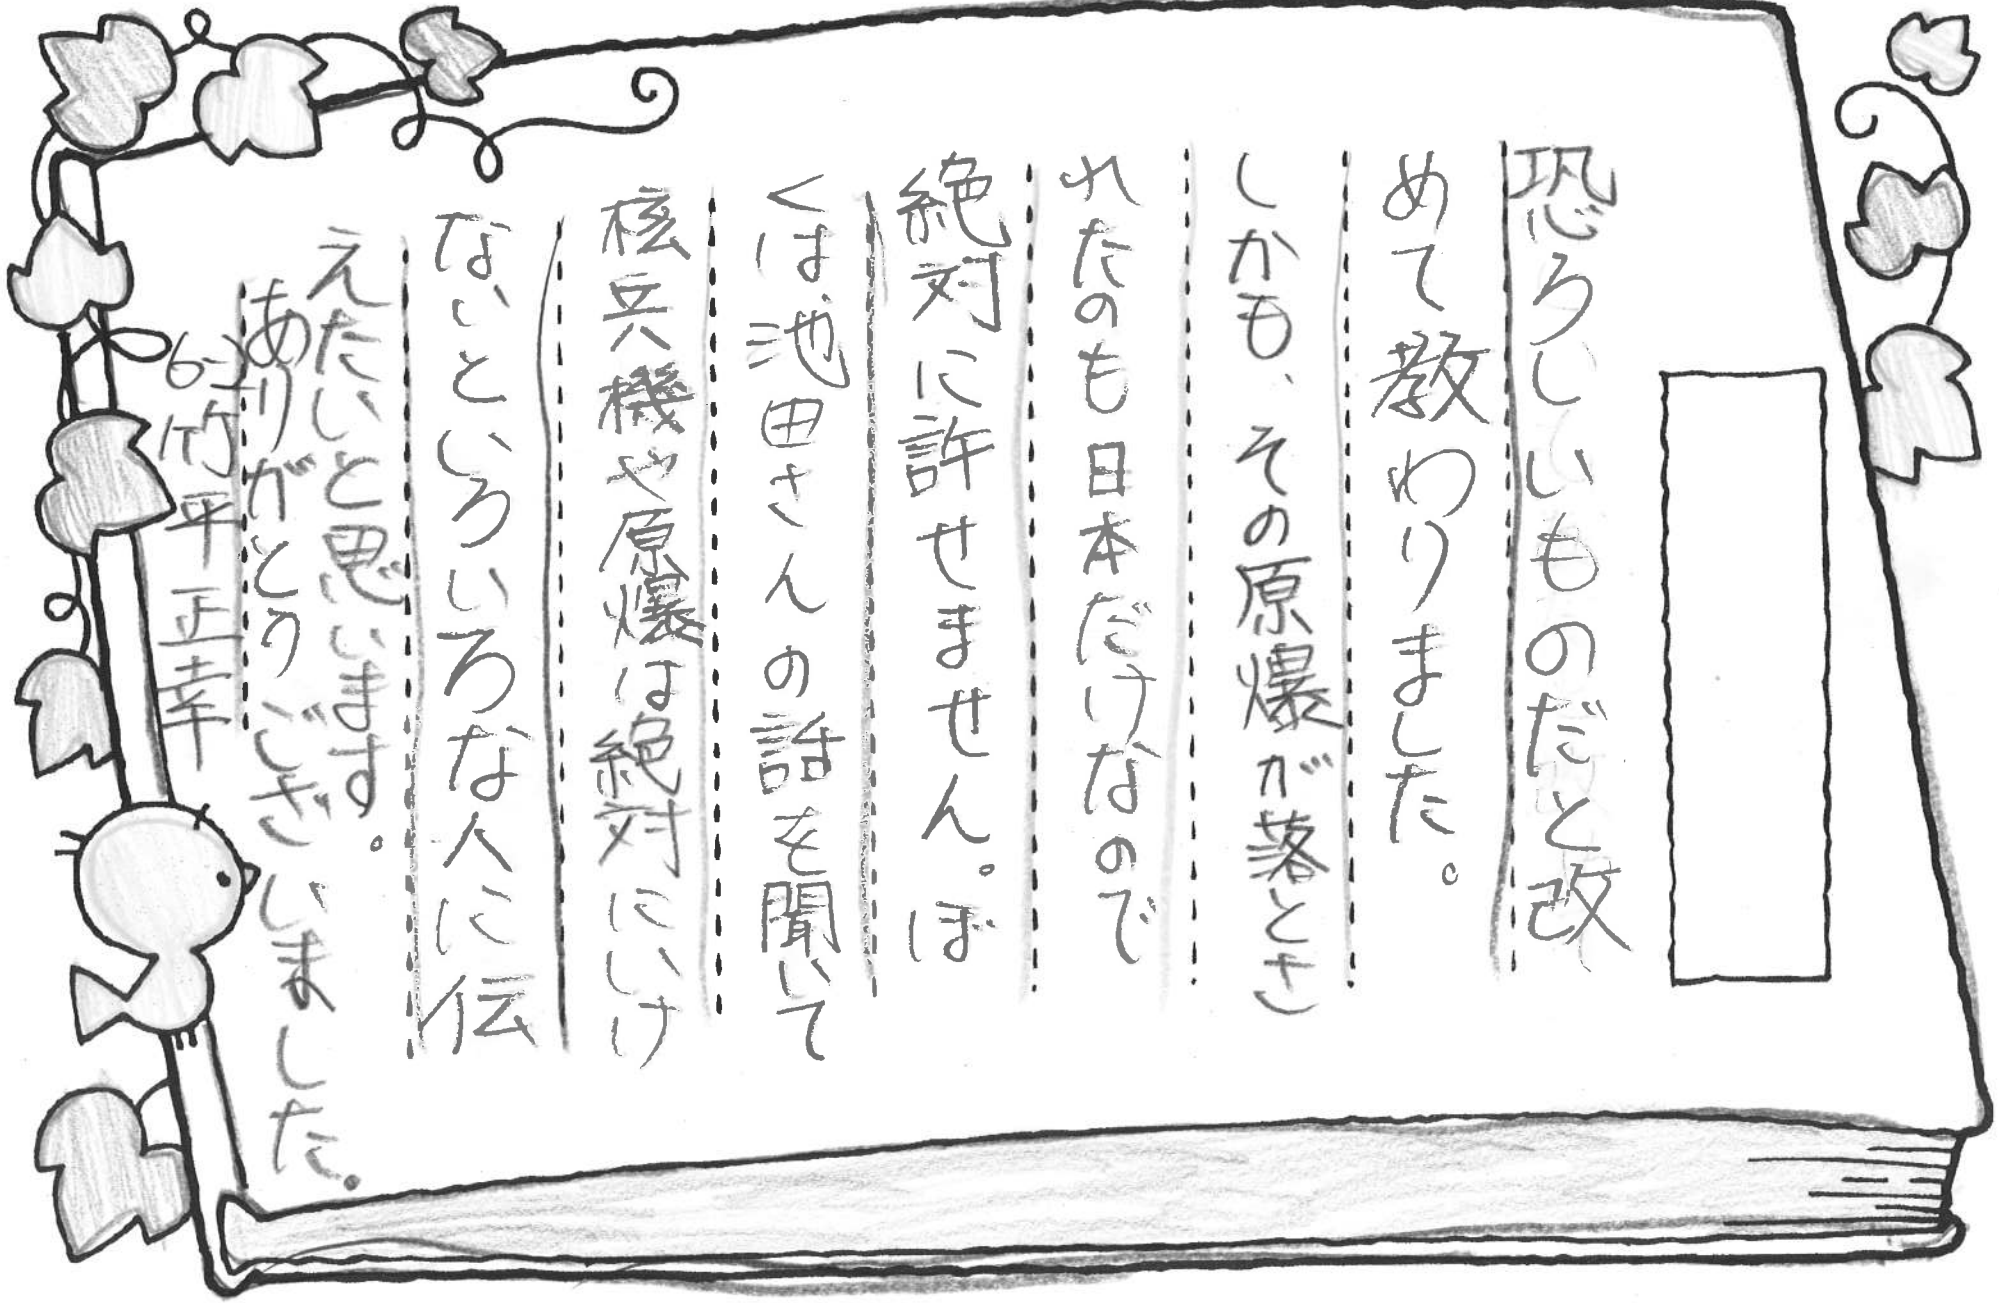 恐ろしいものだと改
めて教わりました。
しかも、その原爆が落とさ
れたのも日本だけなので
絶対に許せません。ぼ
くは、池田さんの話を聞いて
核兵機や原爆は絶対にいけ
ないといろいろな人に伝
えたいと思います。
ありがとうございました。
竹平正幸